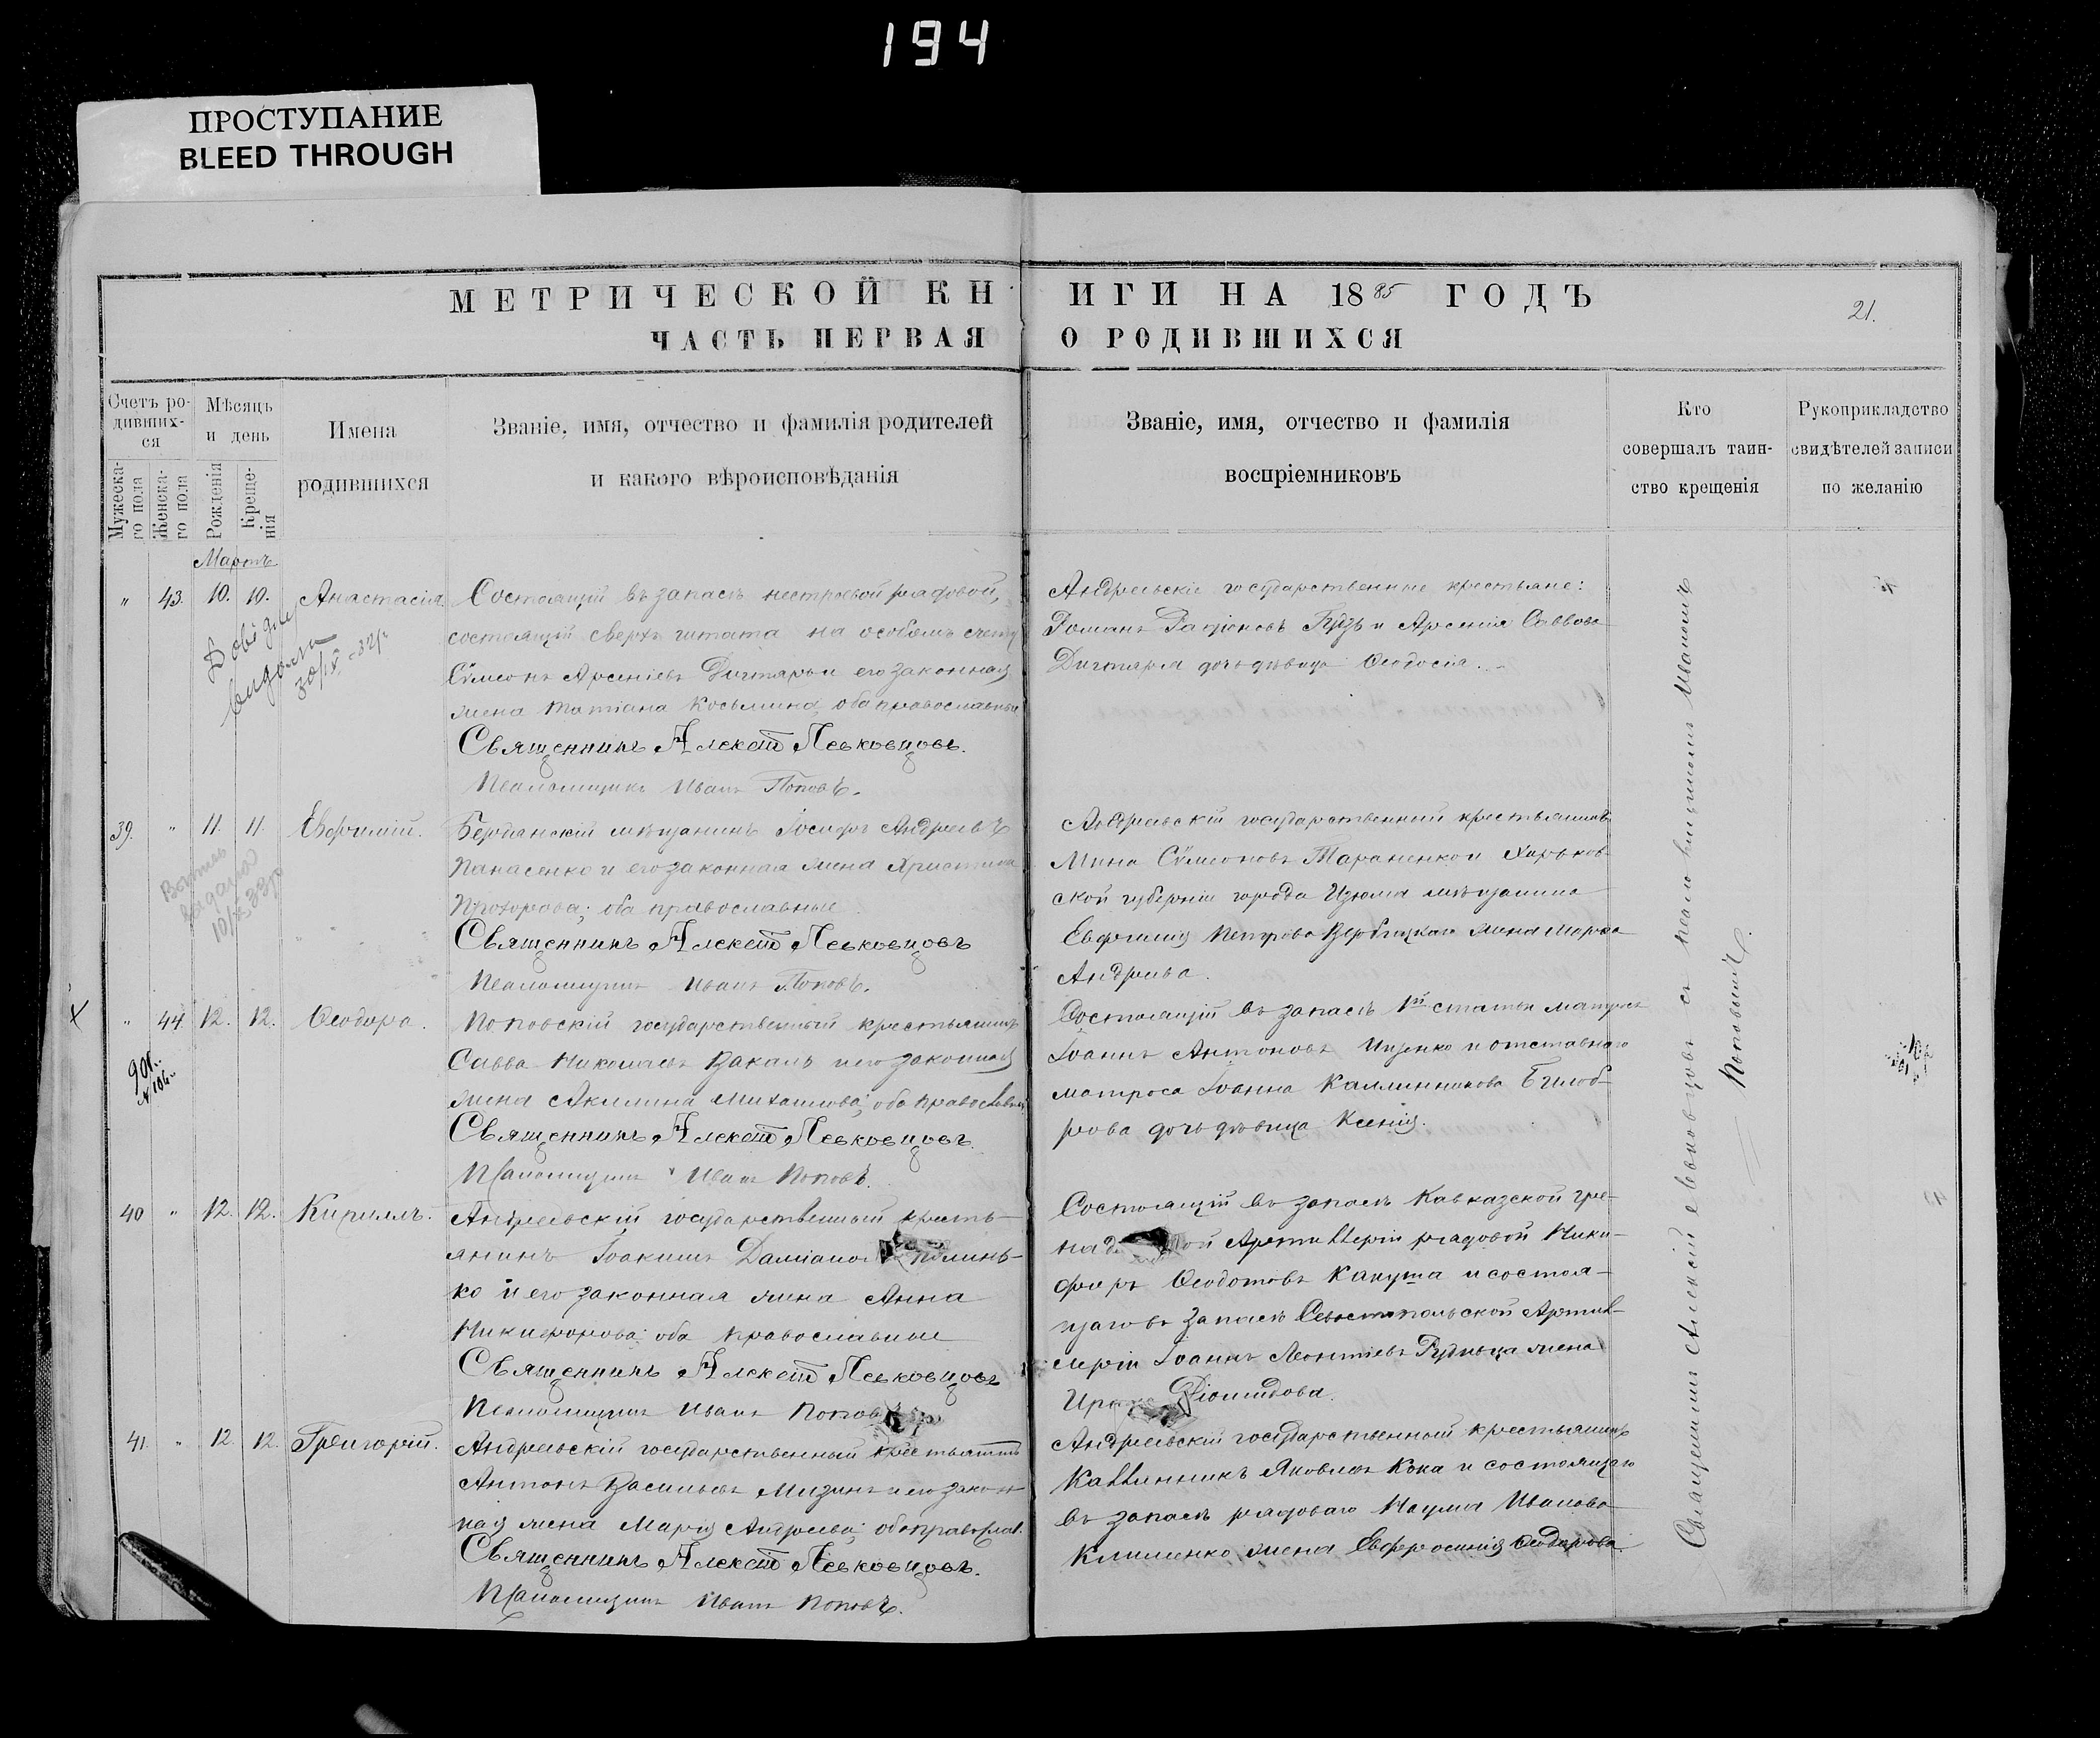 194
ПРОСТУПАНИЕ
BLEED THROUGH
МЕТРИЧЕСКОЙ КНИГИ НА 1885 ГОДЪ
21.
ЧАСТЬ ПЕРВАЯ О РОДИВШИХСЯ
Счетъ ро-
дивших-
ся
Мужеска-
го пола
Женска-
го пола
Мѣсяцъ
и день
Рожденія
Креще-
нія
Имена
родившихся
Званіе, имя, отчество и фамилія родителей
и какого вѣроисповѣданія
Званіе, имя, отчество и фамилія
воспріемниковъ
Кто
совершалъ таин-
ство крещенія
Рукоприкладство
свидѣтелей записи
по желанію
Мартъ
" 43. 10. 10. Анастасія
Состоящій въ запасѣ нестроевой рядовой,
состоящій сверхъ штата на особомъ счету
Сѵмеонъ Арсеніевъ Дигтярь и его законная
жена Татіана Косьмина, оба православные
Священникъ Алексій Левковцовъ.
Псаломщикъ Иванъ Поповъ.
Андреевскіе государственные крестьяне:
Романъ и Арсенія Саввова
Дигтяря дочь дѣвица Ѳеодосія.
39. " 11. 11. Евфимій.
Бердянскій мѣщанинъ Іосифъ Андреевъ
Панасенко и его законная жена Христина
Прохорова; оба православные
Священникъ Алексій Левковцовъ
Псаломщикъ Иванъ Поповъ.
Андреевскій государственный крестьянинъ
Мина Сѵмеоновъ Тараненко и Харьков-
ской губерніи города Изюма мѣщанина
Евфимія Петрова жена Марѳа
Андреева.
" 44. 12. 12. Ѳеодора.
Поповскій государственный крестьянинъ
Савва Николаевъ Вакалъ и его законная
жена Акилина Михаилова; оба православные
Священникъ Алексій Левковцовъ.
Псаломщикъ Иванъ Поповъ.
Состоящій въ запасѣ 1й статьи матросъ
Іоаннъ Антоновъ Ищенко и отставнаго
матроса Іоанна Каллинникова Билоб-
рова дочь дѣвица Ксенія.
40 " 12. 12. Кириллъ.
Андреевскій государственный кресть-
янинъ Іоакимъ
ко и его законная жена Анна
Никифорова; оба православные
Священникъ Алексій Левковцовъ
Псаломщикъ Иванъ Поповъ
Состоящій въ запасѣ Кавказской гре-
Артиллеріи рядовой Ники-
форъ Ѳеодотовъ Капуша и состоя-
щаго въ запасѣ Севастопольской Артил-
леріи Іоаннъ Леонтіевъ жена
Діомидова.
41. " 12. 12. Григорій.
Андреевскій государственный крестьянинъ
Антонъ Васильевъ Мизинъ и его закон-
ная жена Марія Андреева; оба православ.
Священникъ Алексій Левковцовъ.
Псаломщикъ Иванъ Поповъ.
Андреевскій государственный крестьянинъ
Каллинникъ Яковлевъ Кока и состоящаго
въ запасѣ рядоваго Наума Иванова
Клименко жена Евфросинія Ѳеодорова.
Священникъ Алексій Левковцовъ съ псаломщикомъ Иваномъ
Поповымъ.